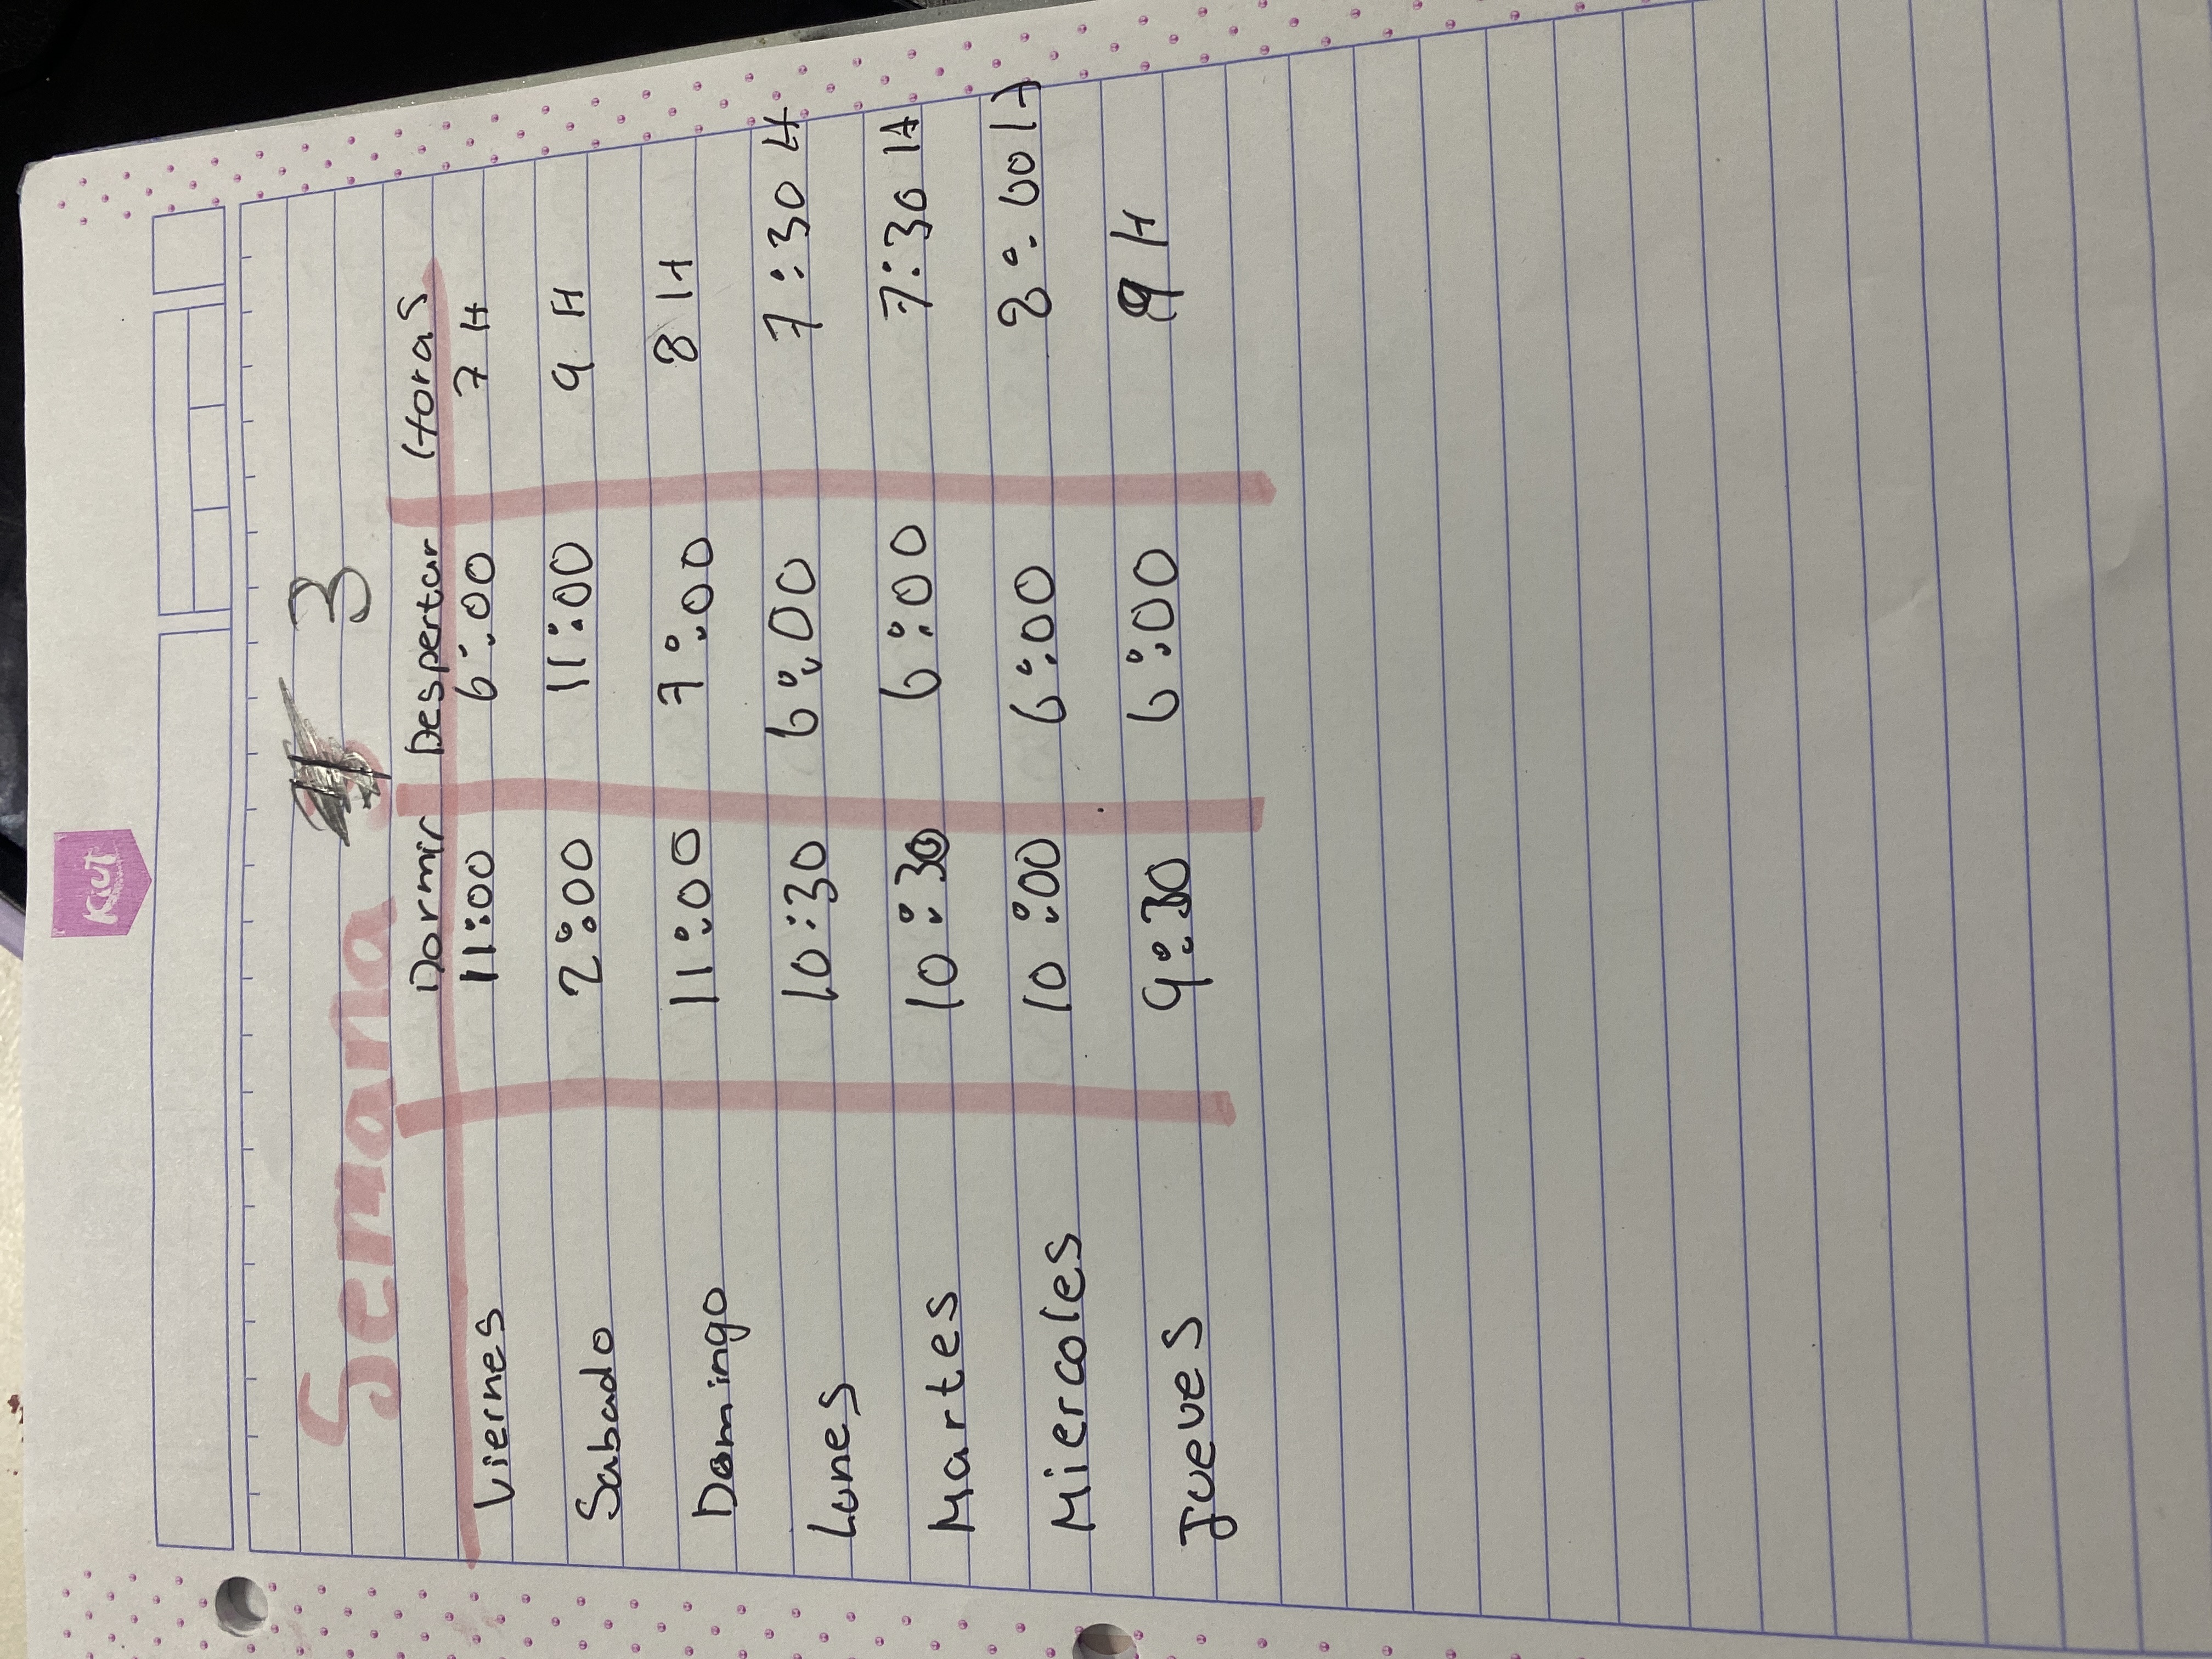 Kiut
Semana 3
Dormir Despertar Horas
Viernes 11:00 6:00 7 H
Sabado 2:00 11:00 9 H
Domingo 11:00 7:00 8 H
Lunes 10:30 6:00 7:30 H
Martes 10:30 6:00 7:30 H
Miercoles 10:00 6:00 8:00 H
Jueves 9:30 6:00 9 H